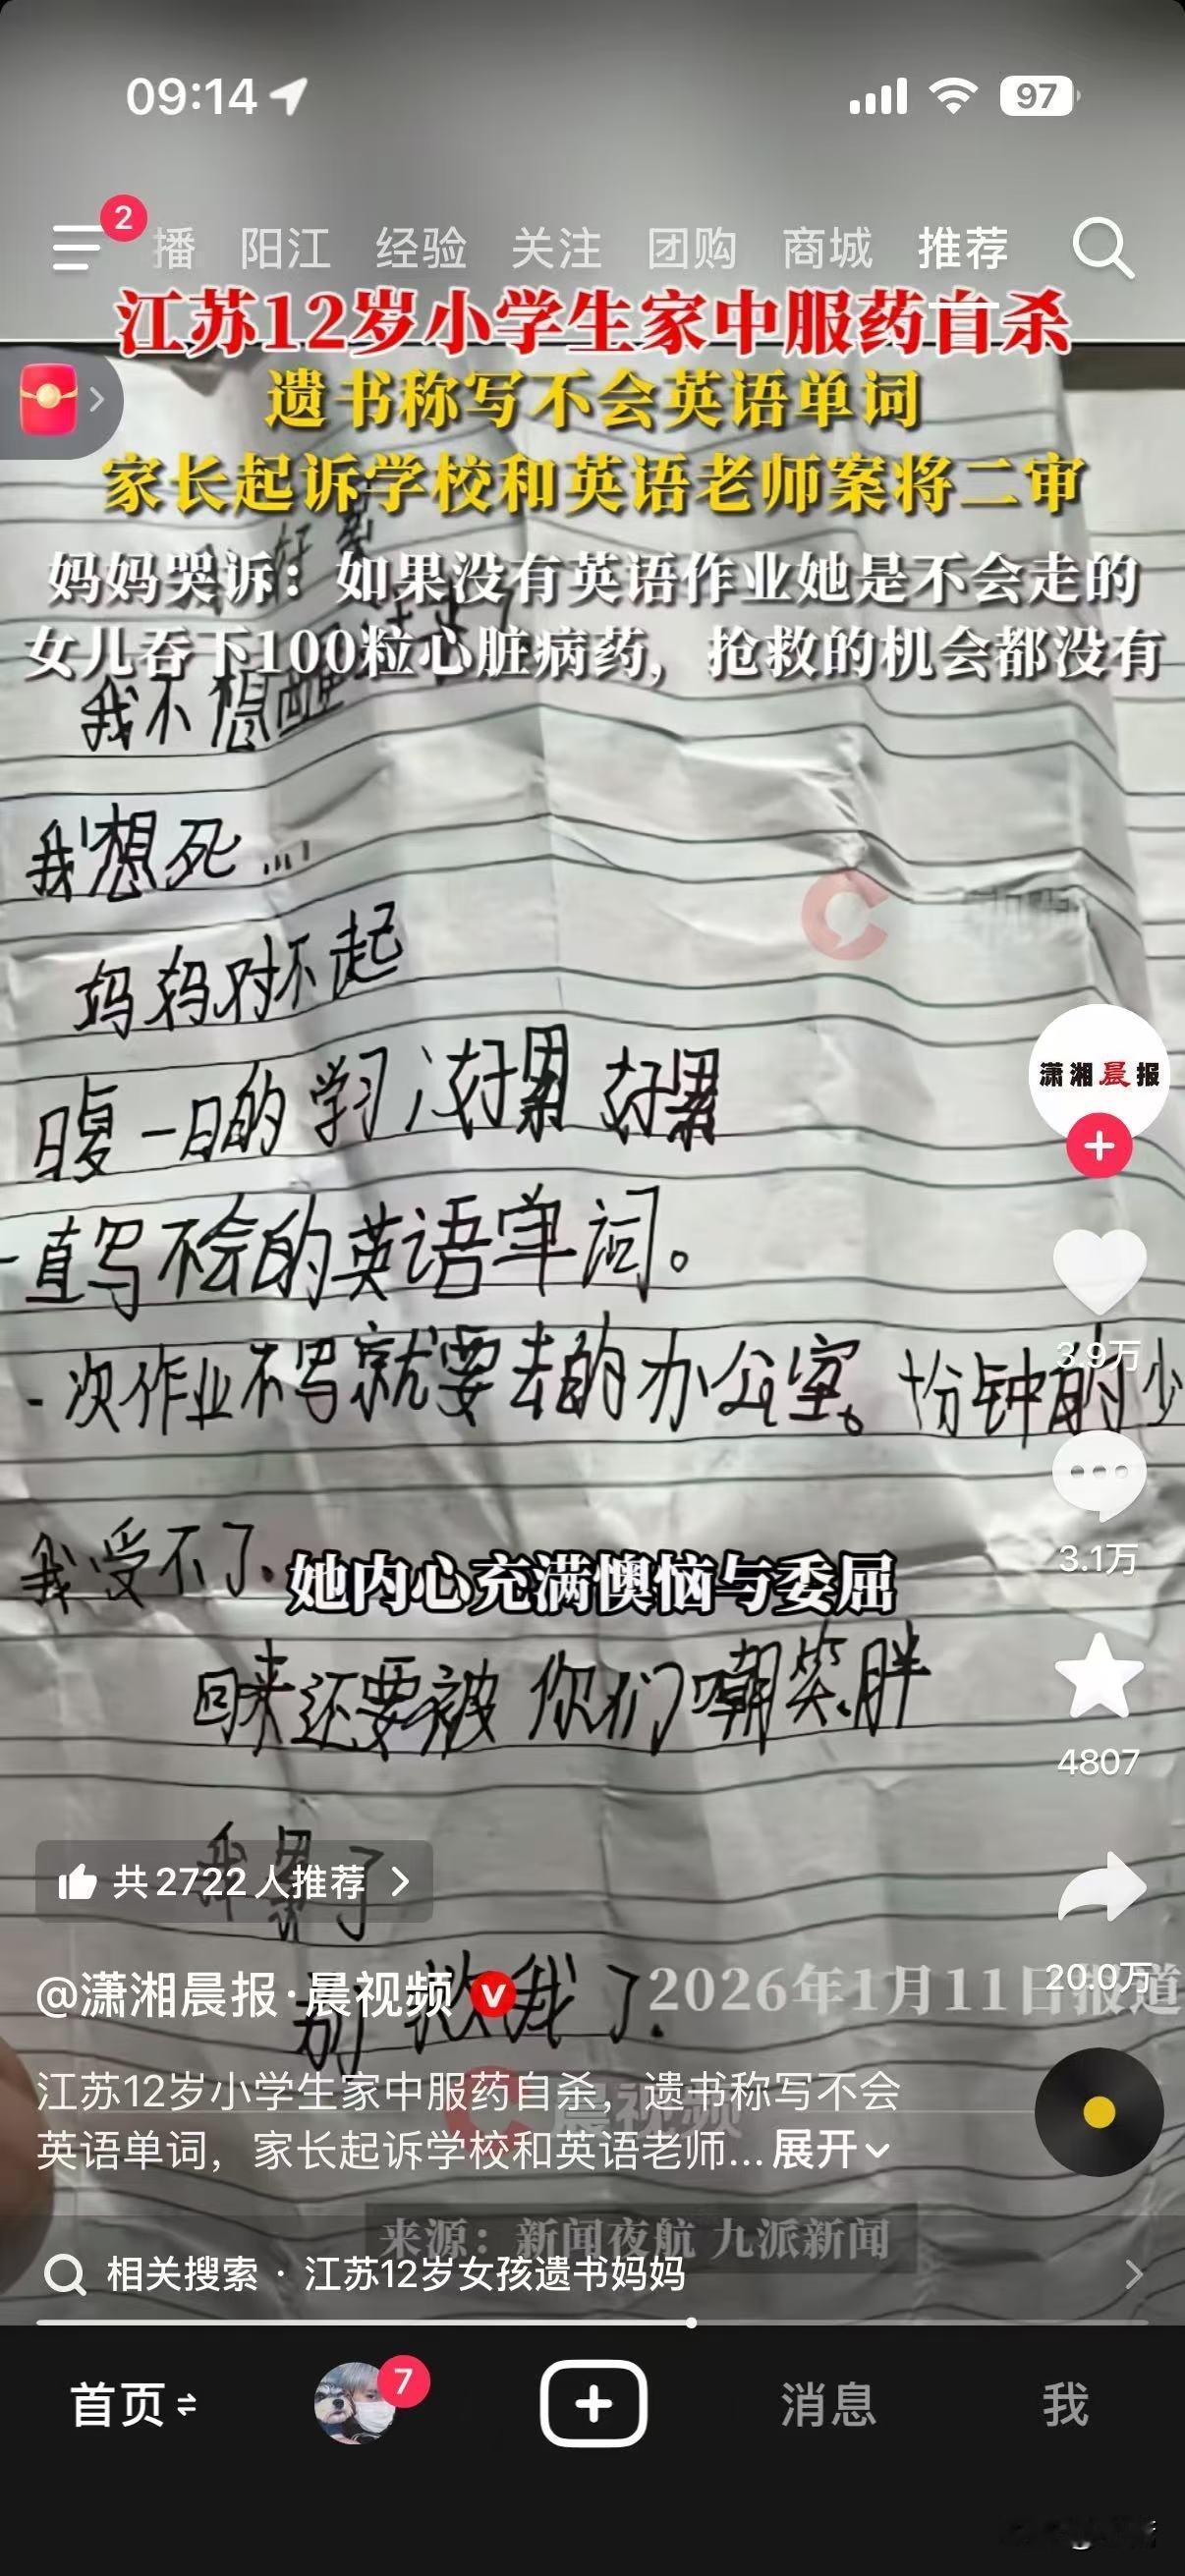 09:14
97
2
播 阳江 经验 关注 团购 商城 推荐
江苏12岁小学生家中服药自杀
遗书称写不会英语单词
家长起诉学校和英语老师案将二审
好累
妈妈哭诉：如果没有英语作业她是不会走的
女儿吞下100粒心脏病药，抢救的机会都没有
我不想
我想死...
妈妈对不起
日复一日的学习，好累 好累
一直写不会的英语单词。
一次作业不写就要去的办公室。十分钟的少
我受不了.
她内心充满懊恼与委屈
回来还要被你们嘲笑胖
我累了
别救我了.
潇湘晨报
3.9万
3.1万
4807
20.0万
共2722人推荐
@潇湘晨报·晨视频
2026年1月11日报道
晨视频
江苏12岁小学生家中服药自杀，遗书称写不会
英语单词，家长起诉学校和英语老师... 展开
来源：新闻夜航 九派新闻
相关搜索 · 江苏12岁女孩遗书妈妈
首页
7
消息
我